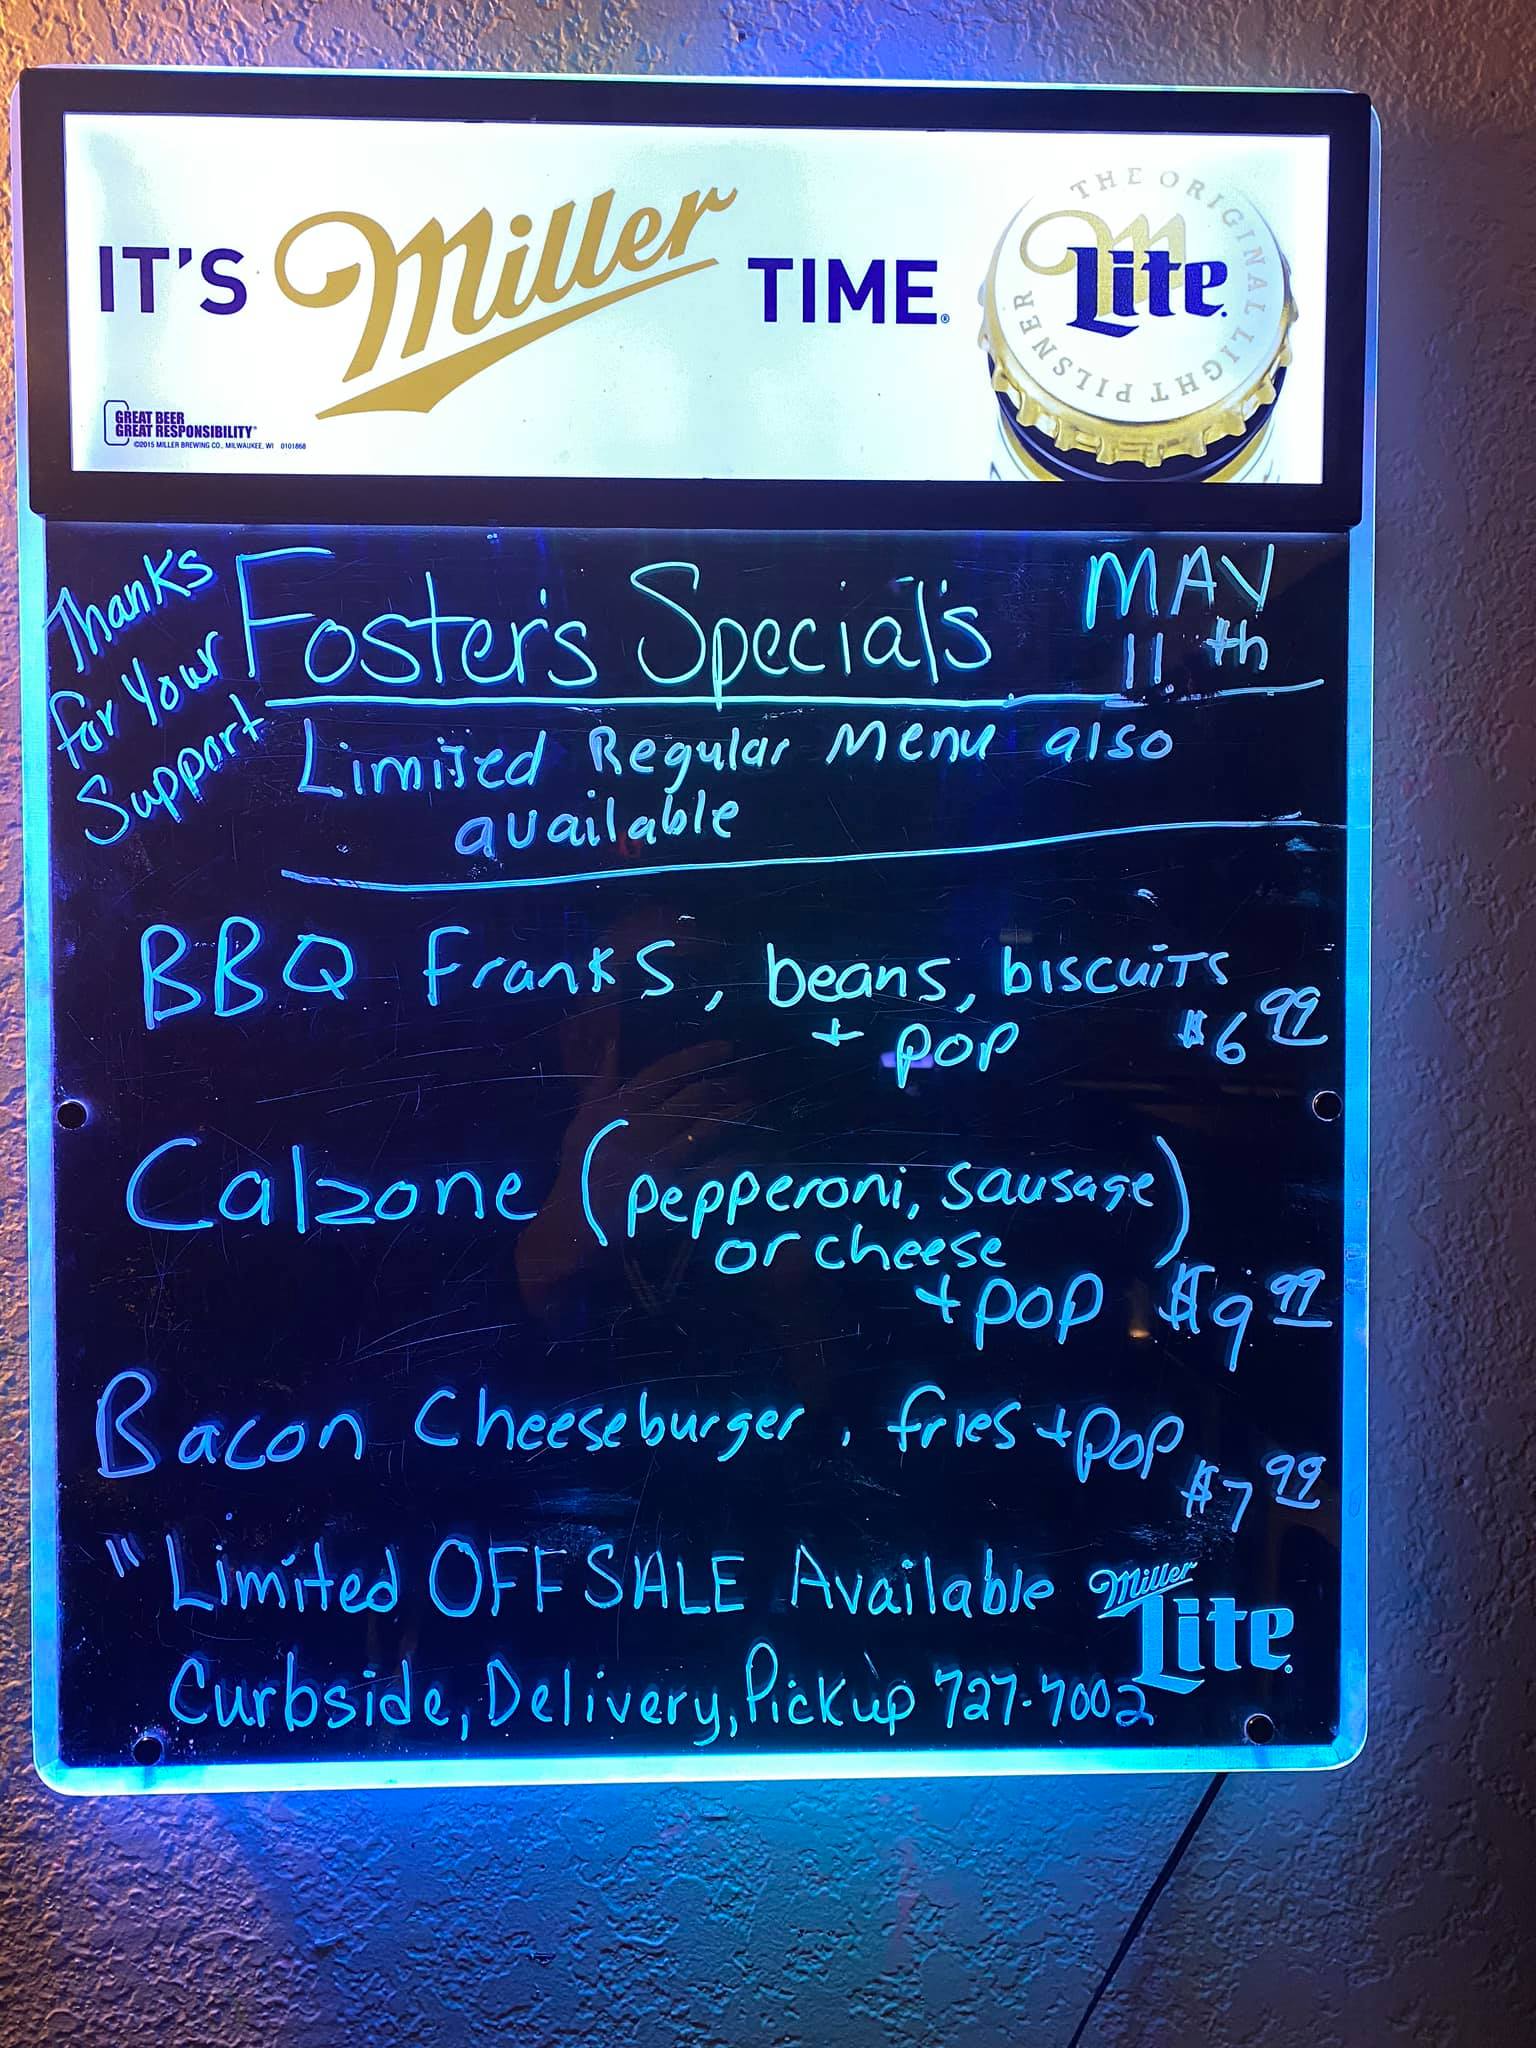 IT'S Miller TIME®
THE ORIGINAL LIGHT PILSNER
M
Lite
GREAT BEER
GREAT RESPONSIBILITY®
©2015 MILLER BREWING CO., MILWAUKEE, WI 0101868
Thanks
for Your
Support
Foster's Special's
MAY
11th
Limited Regular Menu also
available
BBQ Franks, beans, biscuits
+ pop $6 99
Calzone (pepperoni, sausage)
or cheese
+ pop $9 99
Bacon Cheeseburger, fries + pop
$7 99
"Limited OFF SALE Available
Miller
Lite
Curbside, Delivery, Pickup 727-7002